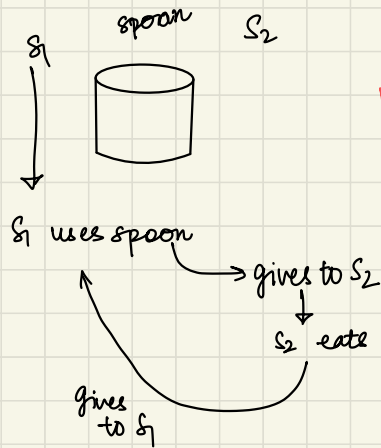 spoon
S1
S2
S1 uses spoon
gives to S2
S2 eats
gives
to S1